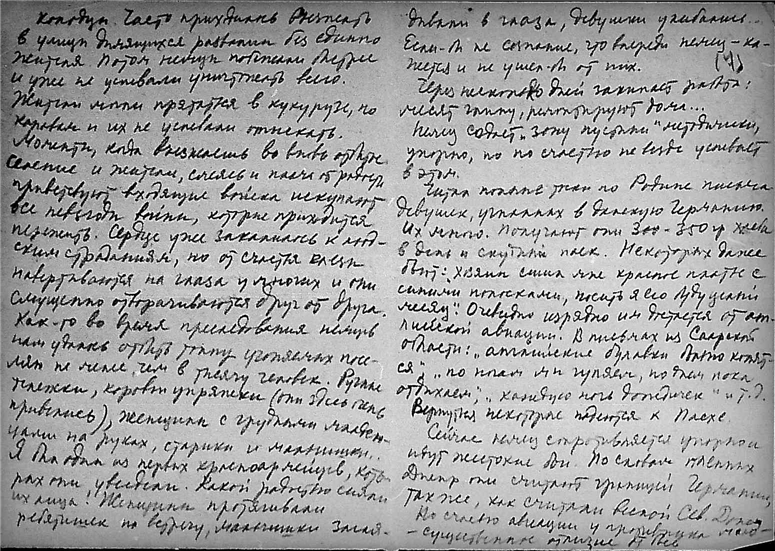 колодцы. Часто приходилось въезжать
в улицы дымящихся развалин без единого
жителя. Потом немцы побежали быстрее
и уже не успевали уничтожать всего.
Жители могли прятаться в кукурузе, но
коровам и их не успевали отыскать.
Моменты, когда въезжаешь во вновь отбитое
селение и жители, смеясь и плача от радости
приветствуют входящие войска искупают
все невзгоды войны, которые приходится
пережить. Сердце уже закалилось к люд-
ским страданиям, но от счастья слезы
навертываются на глаза у многих и они
смущенно отворачиваются друг от друга.
Как-то во время преследования немцев
нам удалось отбить толпу угоняемых посе-
лян не менее чем в тысячу человек. Ручные
тележки, коровьи упряжки (они здесь очень
привились), женщины с грудными младен-
цами на руках, старики и мальчишки.
Я был одним из первых красноармейцев, кото-
рых они увидели. Какой радостью сияли
их лица! Женщины протягивали
ребятишек на встречу, мальчишки загля-
дывали в глаза, девушки улыбались...
Если-бы не сознание, что впереди немец - ка-
жется и не ушел-бы от них.
(4)
Через несколько дней закипает работа:
месят глину, ремонтируют дома...
Немец создает „зону пустыни" методически,
упорно, но по счастью не везде успевает
в этом.
Читал полные тоски по Родине письма
девушек, угнанных в далекую Германию.
Их много. Получают они 300-350 гр хлеба
в день и скудный паек. Некоторых даже
бьют: „хозяин сшил мне красное платье с
синими полосками, носить я его буду целый
месяц". Очевидно изрядно им достается от анг-
лийской авиации. В письмах из Саарской
области: „английские булавки больно колят-
ся", „по ночам мы гуляем, по дням пока
отдыхаем", „каждую ночь дождичек" и т.д.
Вернуться некоторые надеются к Пасхе.
Сейчас немец сопротивляется упорно и
идут жестокие бои. По словам пленных
Днепр они считают границей Германии,
так же, как считали весной Сев. Донец
Но сейчас авиации у противника мало-
-существенное отличие от